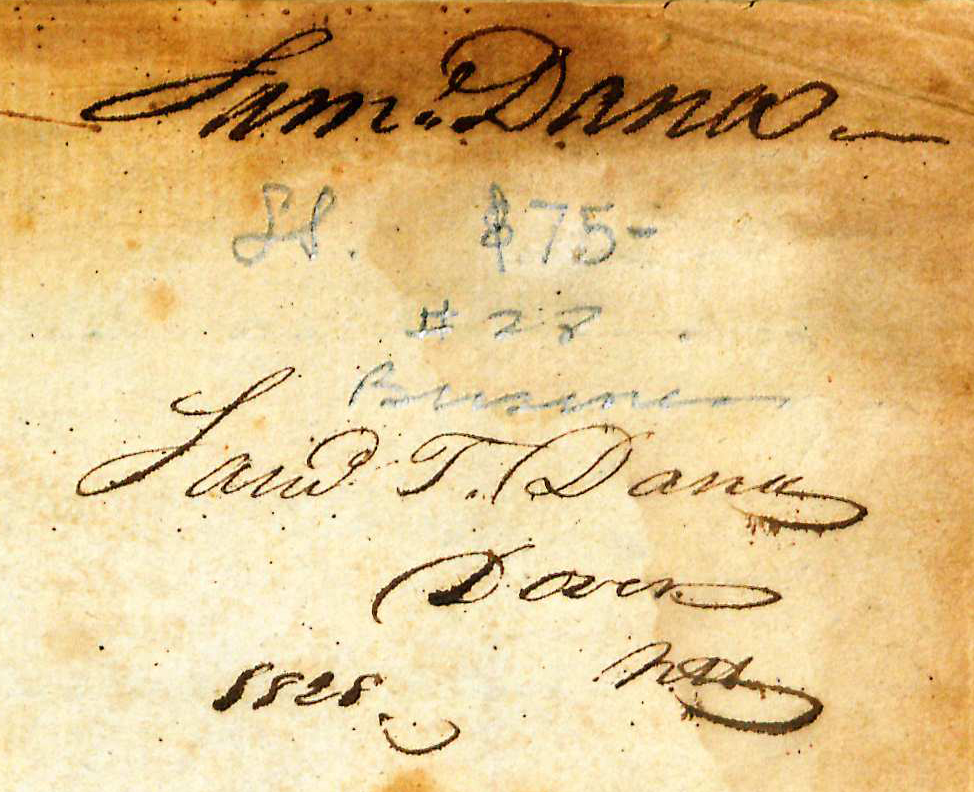 Sam.l Dana
$75-
#28
Business
Sam.l T. Dana
Dover
NH
1828